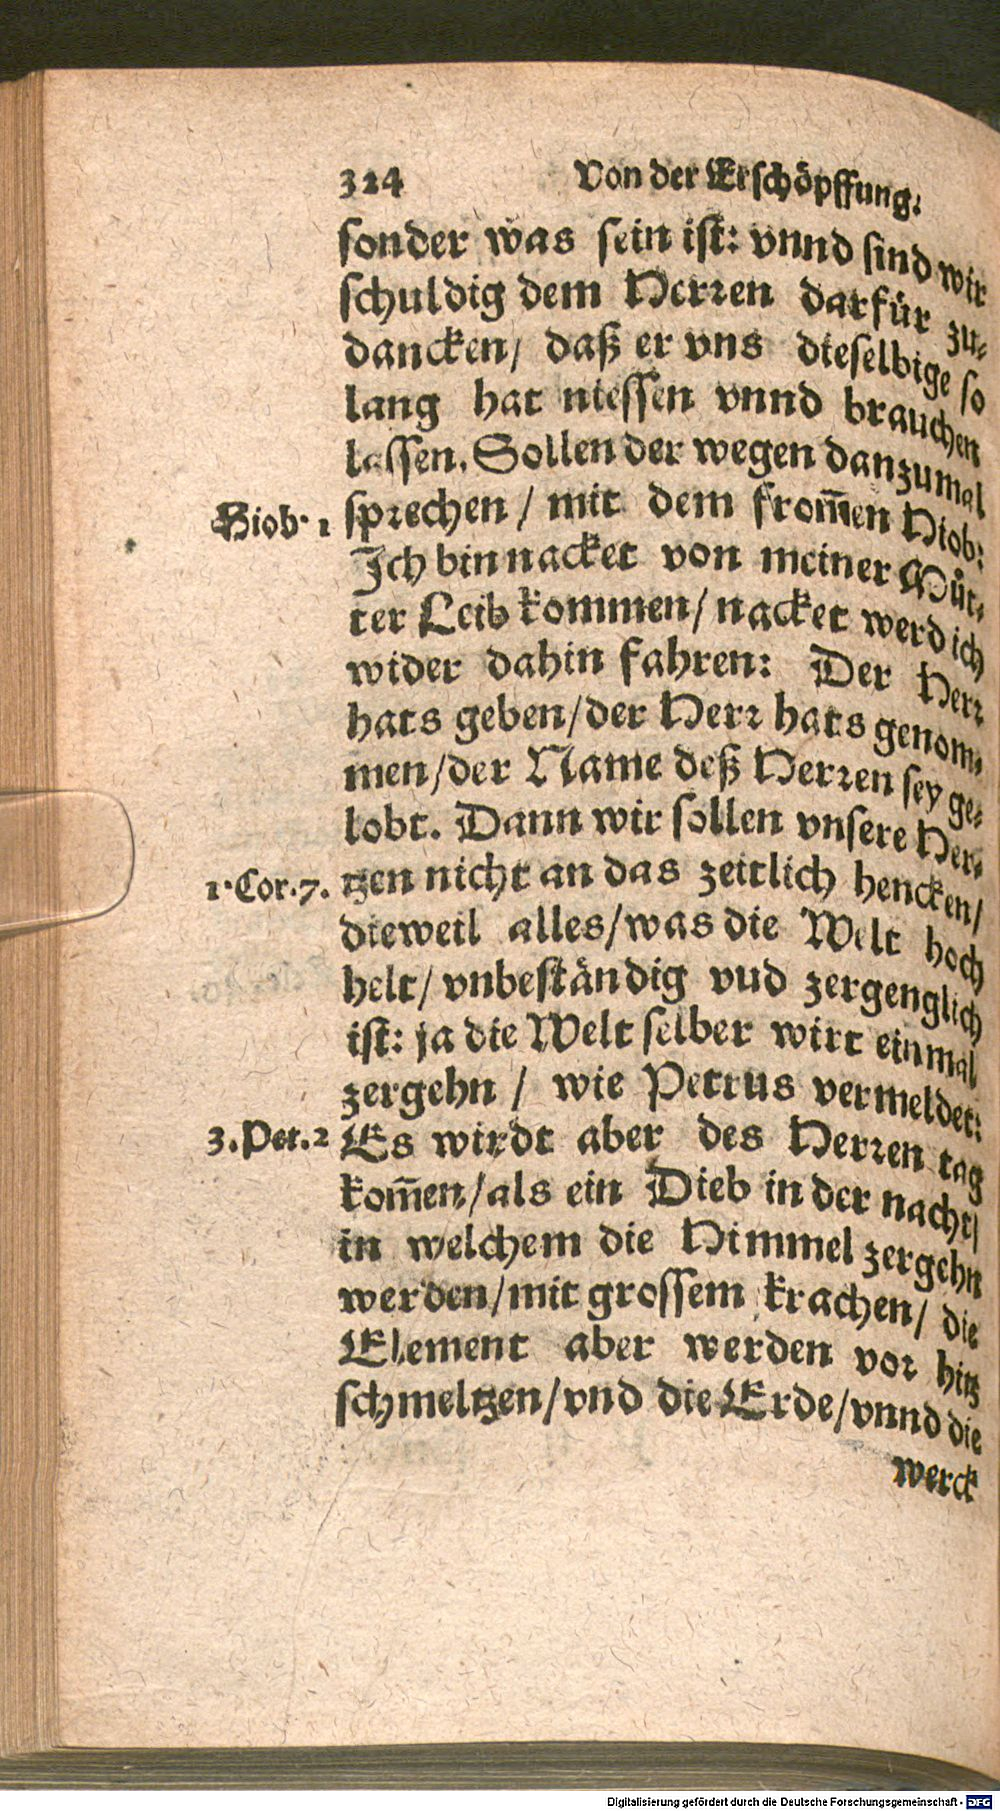 324 Von der Erschöpffung:
sonder was sein ist: vnnd sind wir
schuldig dem Herren darfür zu-
dancken/ daß er vns dieselbige so
lang hat niessen vnnd brauchen
lassen. Sollen der wegen danzumal
Hiob. 1 sprechen / mit dem from̃en Hiob:
Ich bin nacket von meiner Můt-
ter Leib kommen/ nacket werd ich
wider dahin fahren: Der Herr
hats geben/der Herr hats genom-
men/der Name deß Herren sey ge-
lobt. Dann wir sollen vnsere Her-
1. Cor. 7. tzen nicht an das zeitlich hencken/
dieweil alles/was die Welt hoch
helt/ vnbeständig vud zergenglich
ist: ja die Welt selber wirt einmal
zergehn / wie Petrus vermeldet:
3. Pet. 2 Es wirdt aber des Herren tag
kom̃en/als ein Dieb in der nacht/
in welchem die Himmel zergehn
werden/mit grossem krachen/ die
Element aber werden vor hitz
schmeltzen/vnd die Erde/vnnd die
werck
Digitalisierung gefördert durch die Deutsche Forschungsgemeinschaft - DFG